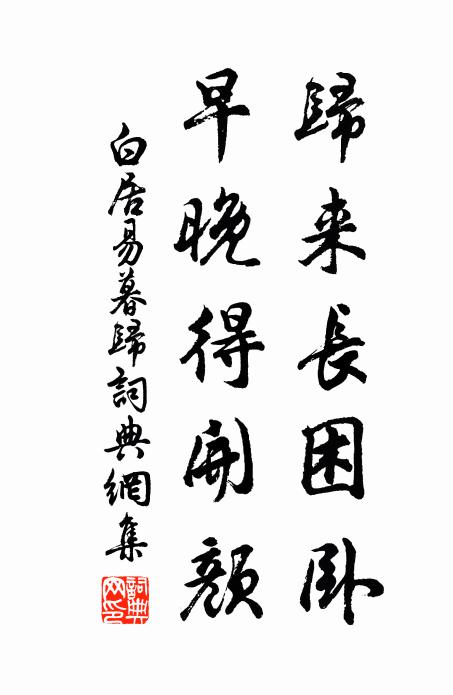 歸来長困卧
早晚得開顏
白居易暮歸詞典網集
詞典網印